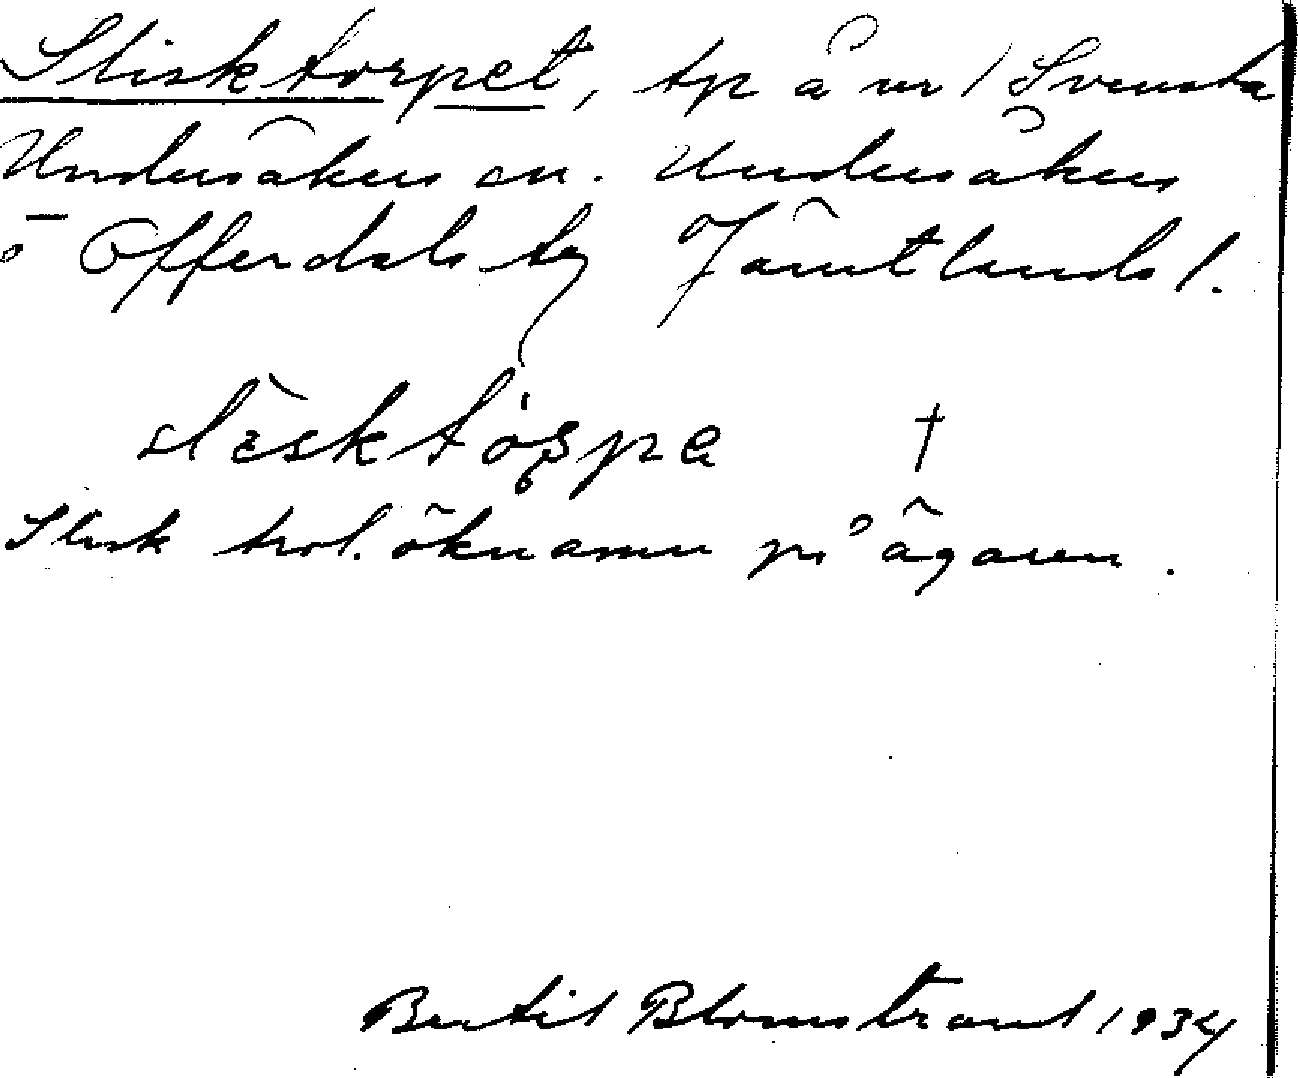 Slisktorpet, tp å nr 1 Svenska
Undersåkers sn. Undersåkers
o Offerdals tg Jämtlands l.
slèsktöspa †
Slisk trol. öknamn på ägaren.
Bertil Blomstrand 1934